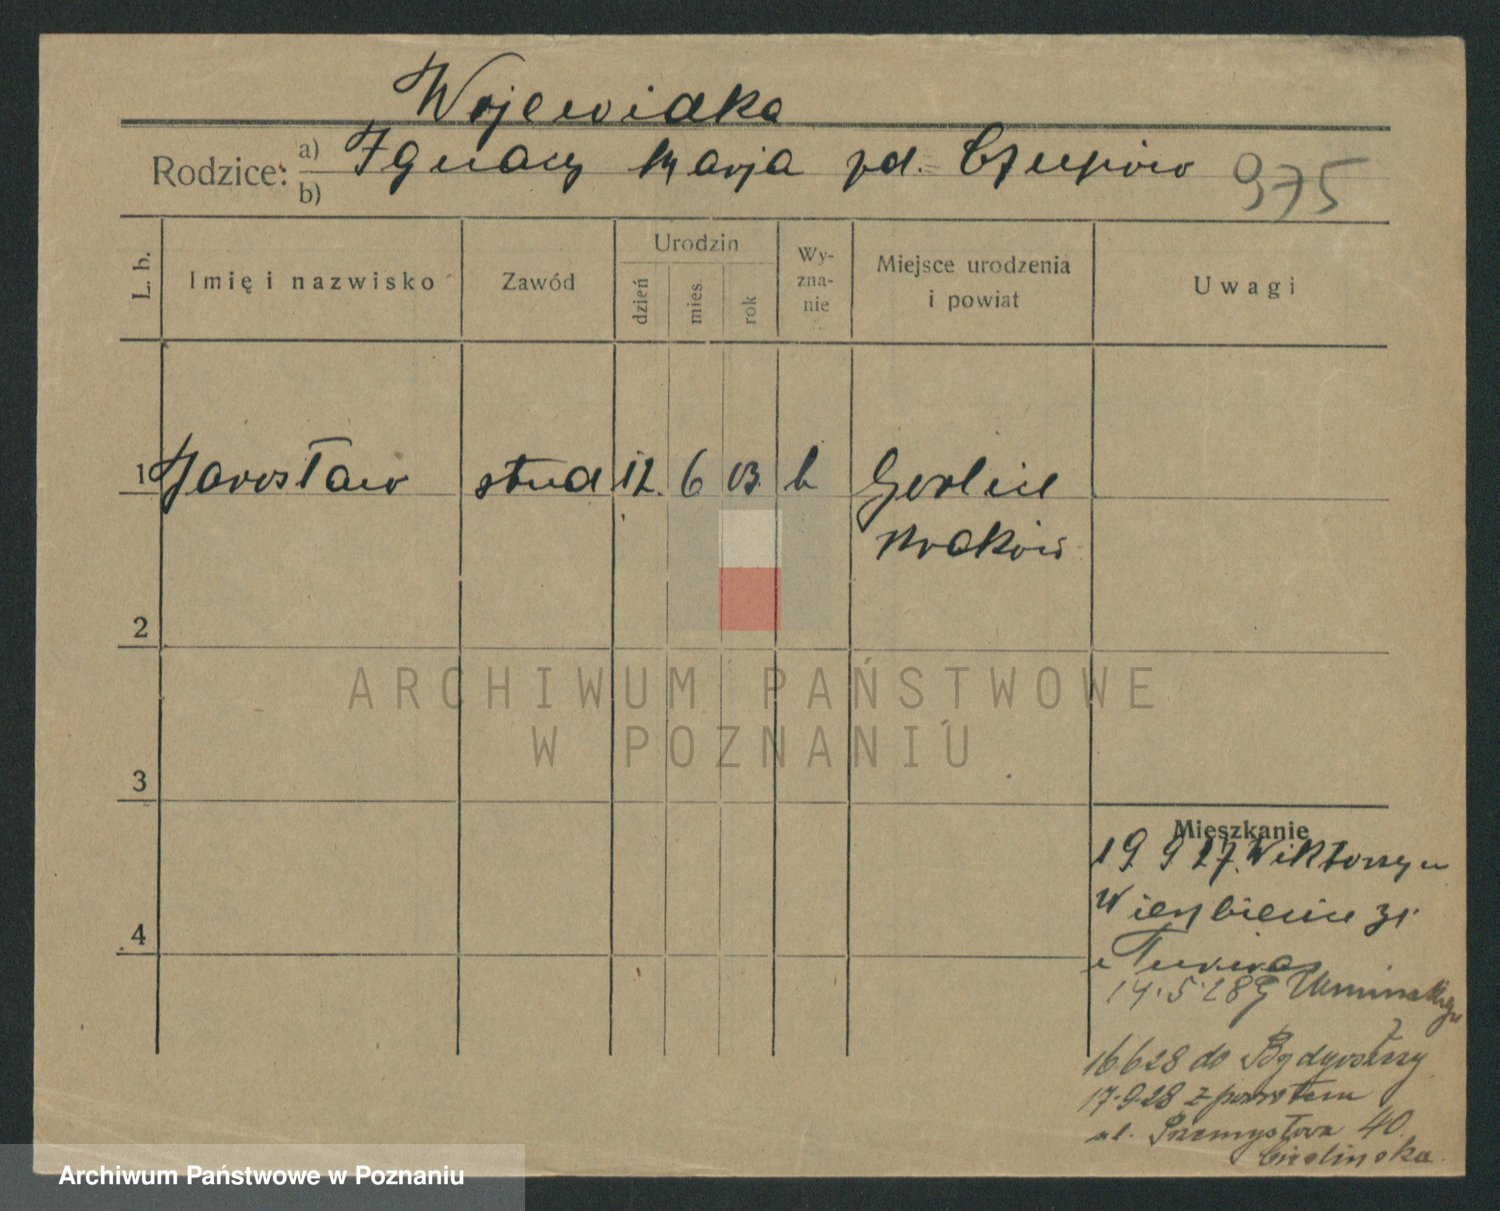 Wojewidka
Rodzice: a) Ignacy Marja zd. Czupów
b)
975
L. b.
Imię i nazwisko
Zawód
Urodzin
dzień
mies.
rok
Wy-
zna-
nie
Miejsce urodzenia
i powiat
Uwagi
1 Jarosław stud 12. 6 03. k Gorlice
Kraków
2
3
4
Mieszkanie
19 9 27.
Wierzbięcice 31
14.5.28 Umińskiego 7
16 6 28 do Bydgoszczy
17.9.28 z powrotem
ul. Przemysłowa 40
Cieślińska
ARCHIWUM PAŃSTWOWE
W POZNANIU
Archiwum Państwowe w Poznaniu